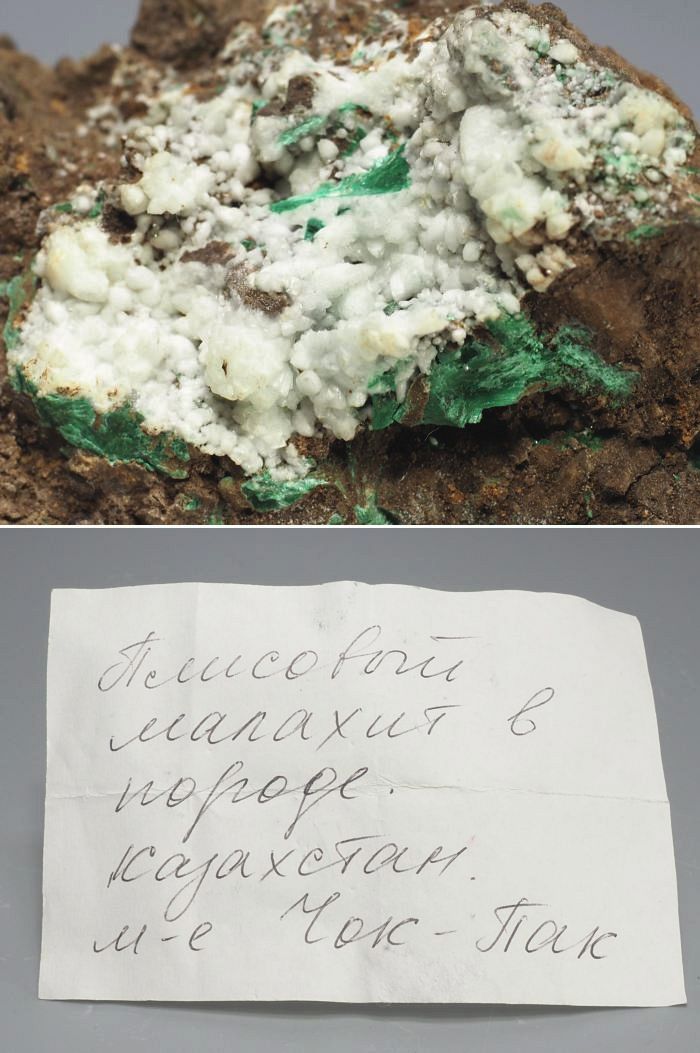 Плисовый
малахит в
породе.
Казахстан.
м-е Чок-Пак